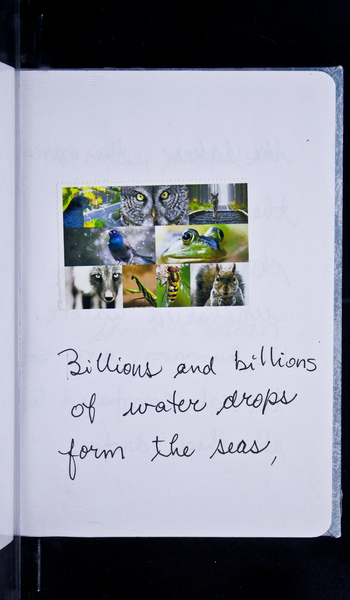 Billions and billions
of water drops
form the seas,